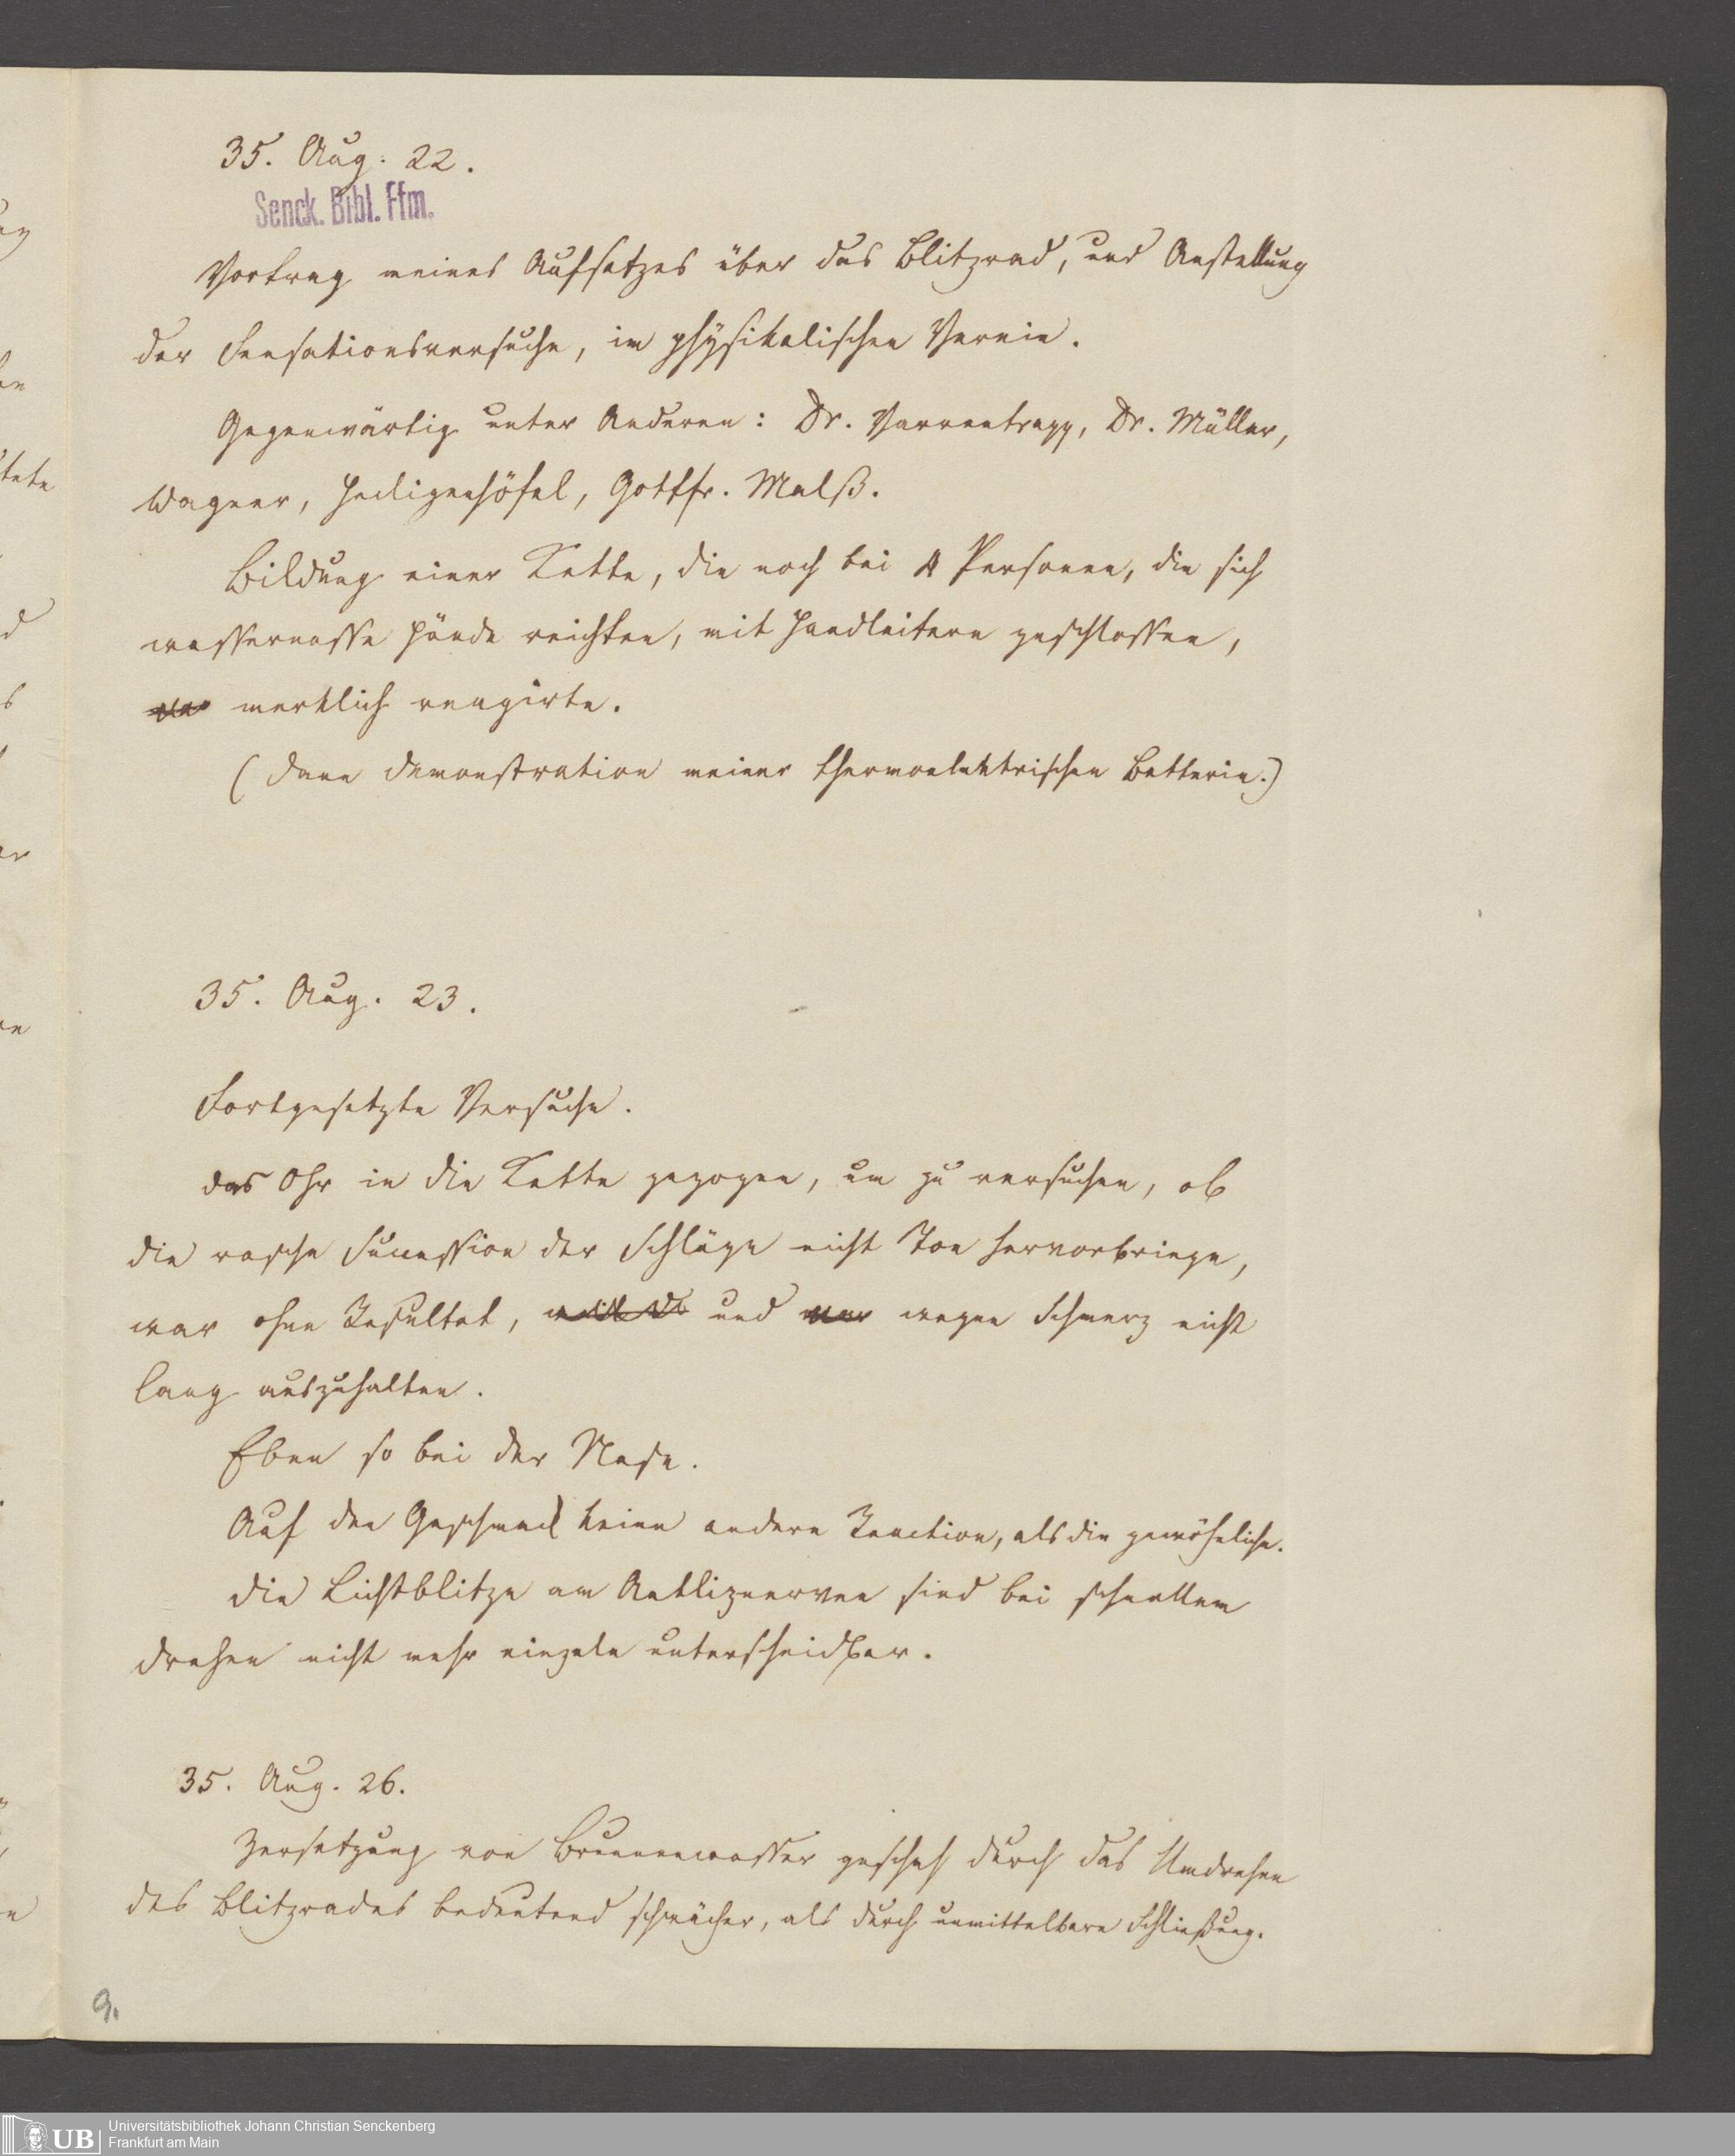 35. Aug. 22.
Senck. Bibl. Ffm.
Vortrag meines Aufsatzes über das Blitzrad, und Anstellung
der Sensationsversuche, im physikalischen Verein.
Gegenwärtig unter Anderen: Dr. Varrentrapp, Dr. Müller,
Wagner, Heiligenhöfel, Gottfr. Malß.
Bildung einer Kette, die noch bei 4 Personen, die sich
wassernasse Hände reichten, mit Handleitern geschlossen,
merklich reagirte.
(Dann Demonstration meiner thermoelektrischen Batterie.)
35. Aug. 23.
Fortgesetzte Versuche.
Das Ohr in die Kette gezogen, um zu versuchen, ob
die rasche Succession der Schläge nicht Ton hervorbringe,
war ohne Resultat, und wegen Schmerz nicht
lang auszuhalten.
Eben so bei der Nase.
Auf den Geschmack keine andere Reaction, als die gewöhnliche.
Die Lichtblitze am Antliznerven sind bei schnellem
Drehen nicht mehr einzeln unterscheidbar.
35. Aug. 26.
Zersetzung von Brunnenwasser geschah durch das Umdrehen
des Blitzrades bedeutend schwächer, als durch unmittelbare Schließung.
9.
UB Universitätsbibliothek Johann Christian Senckenberg
Frankfurt am Main